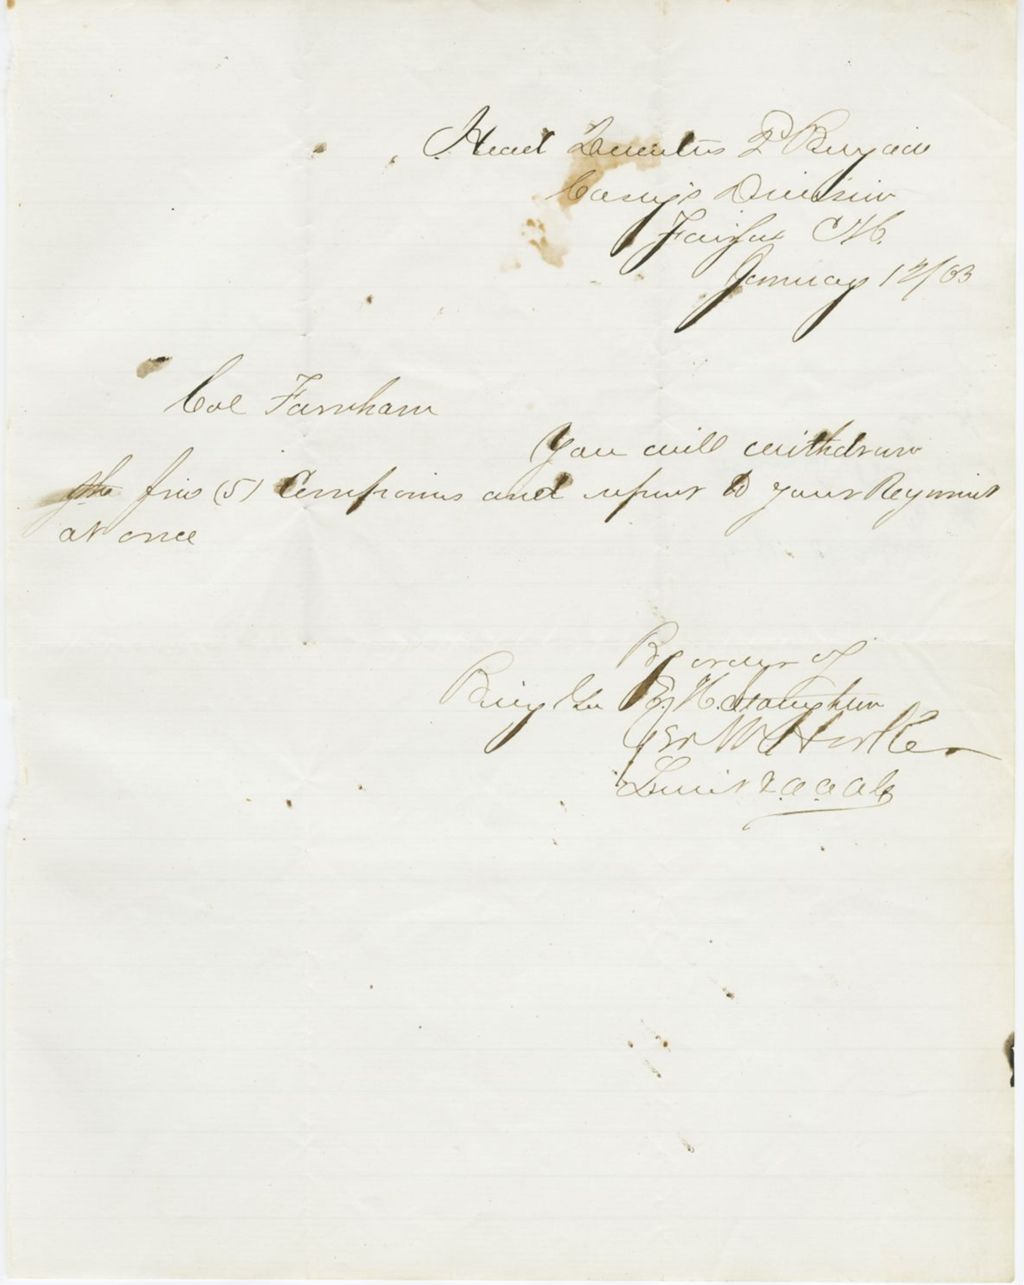 Head Quarters 2d Brigade
Casey's Division
Fairfax C.H.
January 12/63
Col Farnham
You will withdraw
the five (5) Companies and report to your Regiment
at once
By order of
Brig Gen E. H. Stoughton
Lieut & a a a G